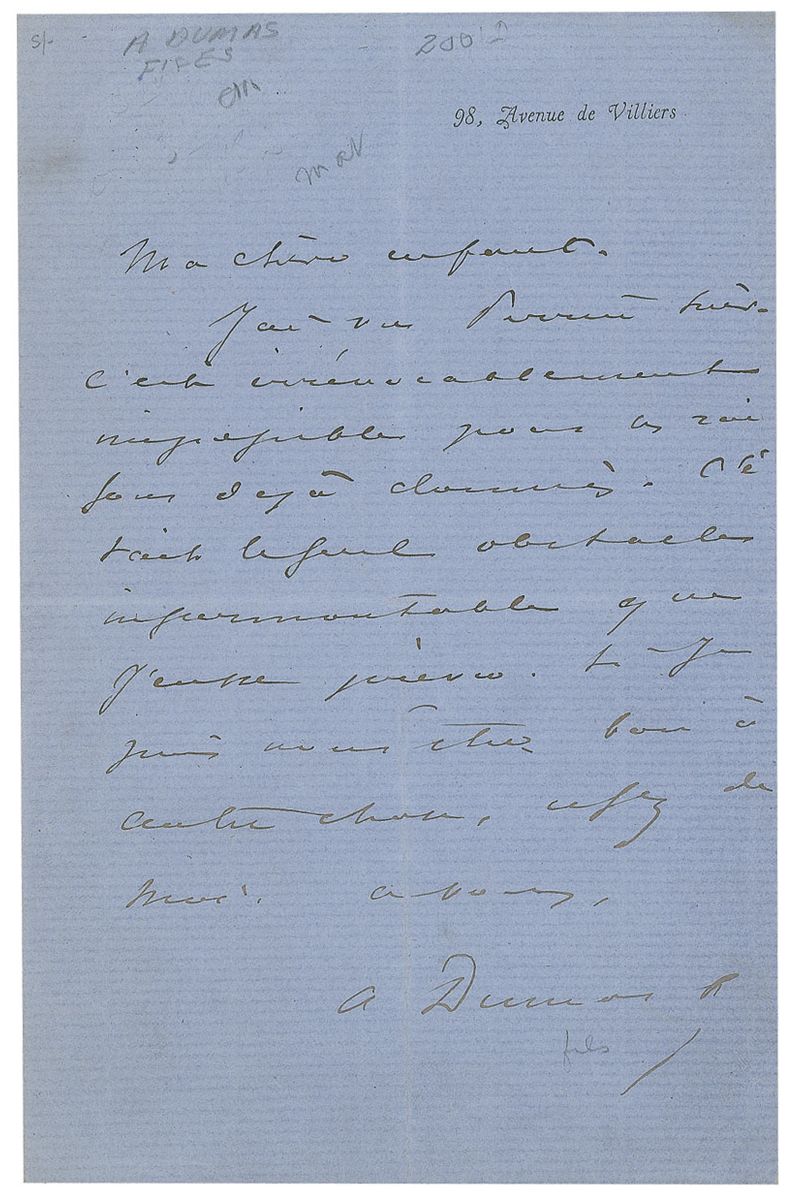 s/-
A DUMAS
FIFES
200
98, Avenue de Villiers
Ma chère enfant.
J'ai vu Perrin hier.
c'est irrévocablement
impossible pour les rai
sons dejà données. C'é
tait le seul obstacle
insurmontable que
j'eusse prévu. Si je
puis vous être bon à
autre chose, usez de
moi. a vous,
A Dumas f
fils